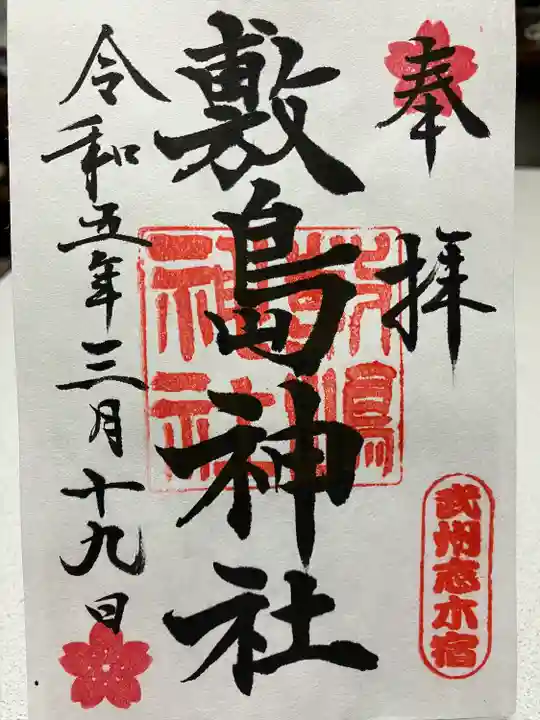 奉拝
武州志木宿
敷島神社
敷嶋
神社
令和五年三月十九日